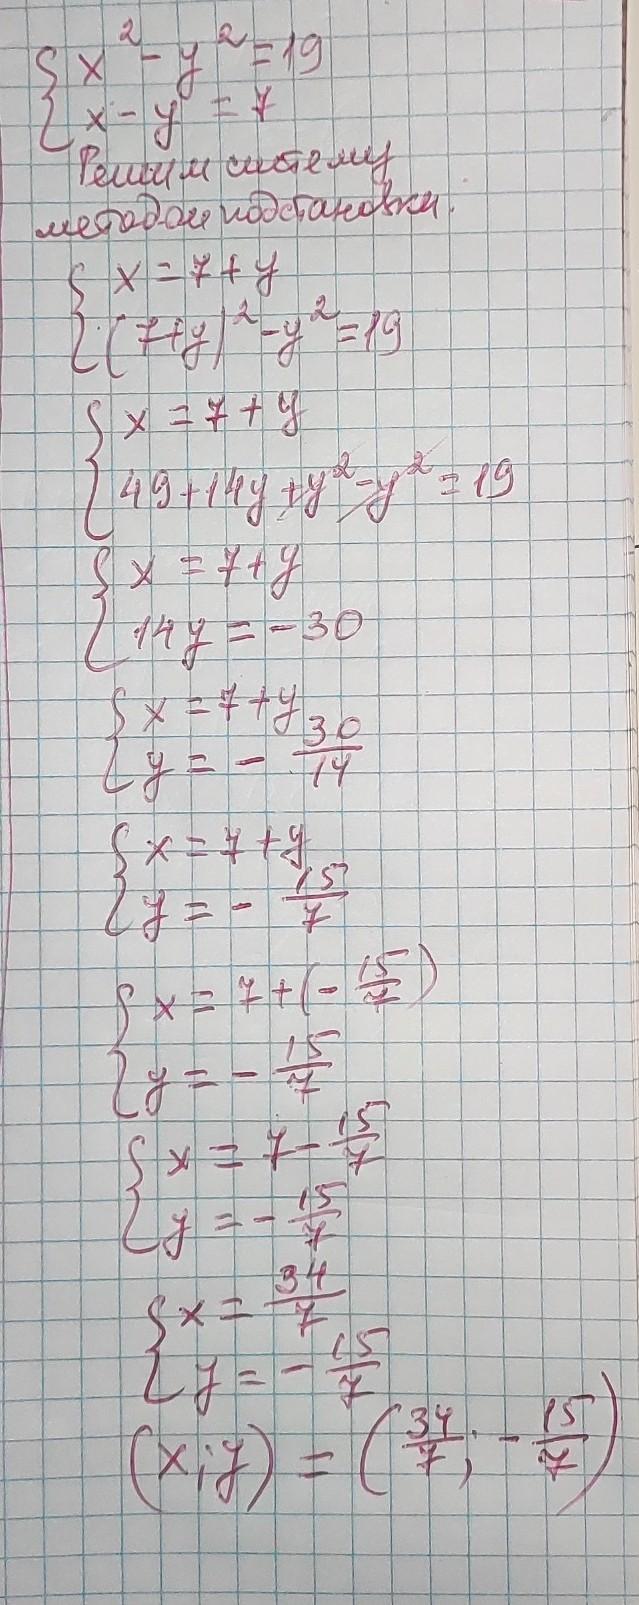 { x² - y² = 19
{ x - y = 7
Решим систему
методом подстановки.
{ x = 7 + y
{ (7+y)² - y² = 19
{ x = 7 + y
{ 49 + 14y + y² - y² = 19
{ x = 7 + y
{ 14y = - 30
{ x = 7 + y
{ y = - 30/14
{ x = 7 + y
{ y = - 15/7
{ x = 7 + (- 15/7)
{ y = - 15/7
{ x = 7 - 15/7
{ y = - 15/7
{ x = 34/7
{ y = - 15/7
(x; y) = (34/7; - 15/7)